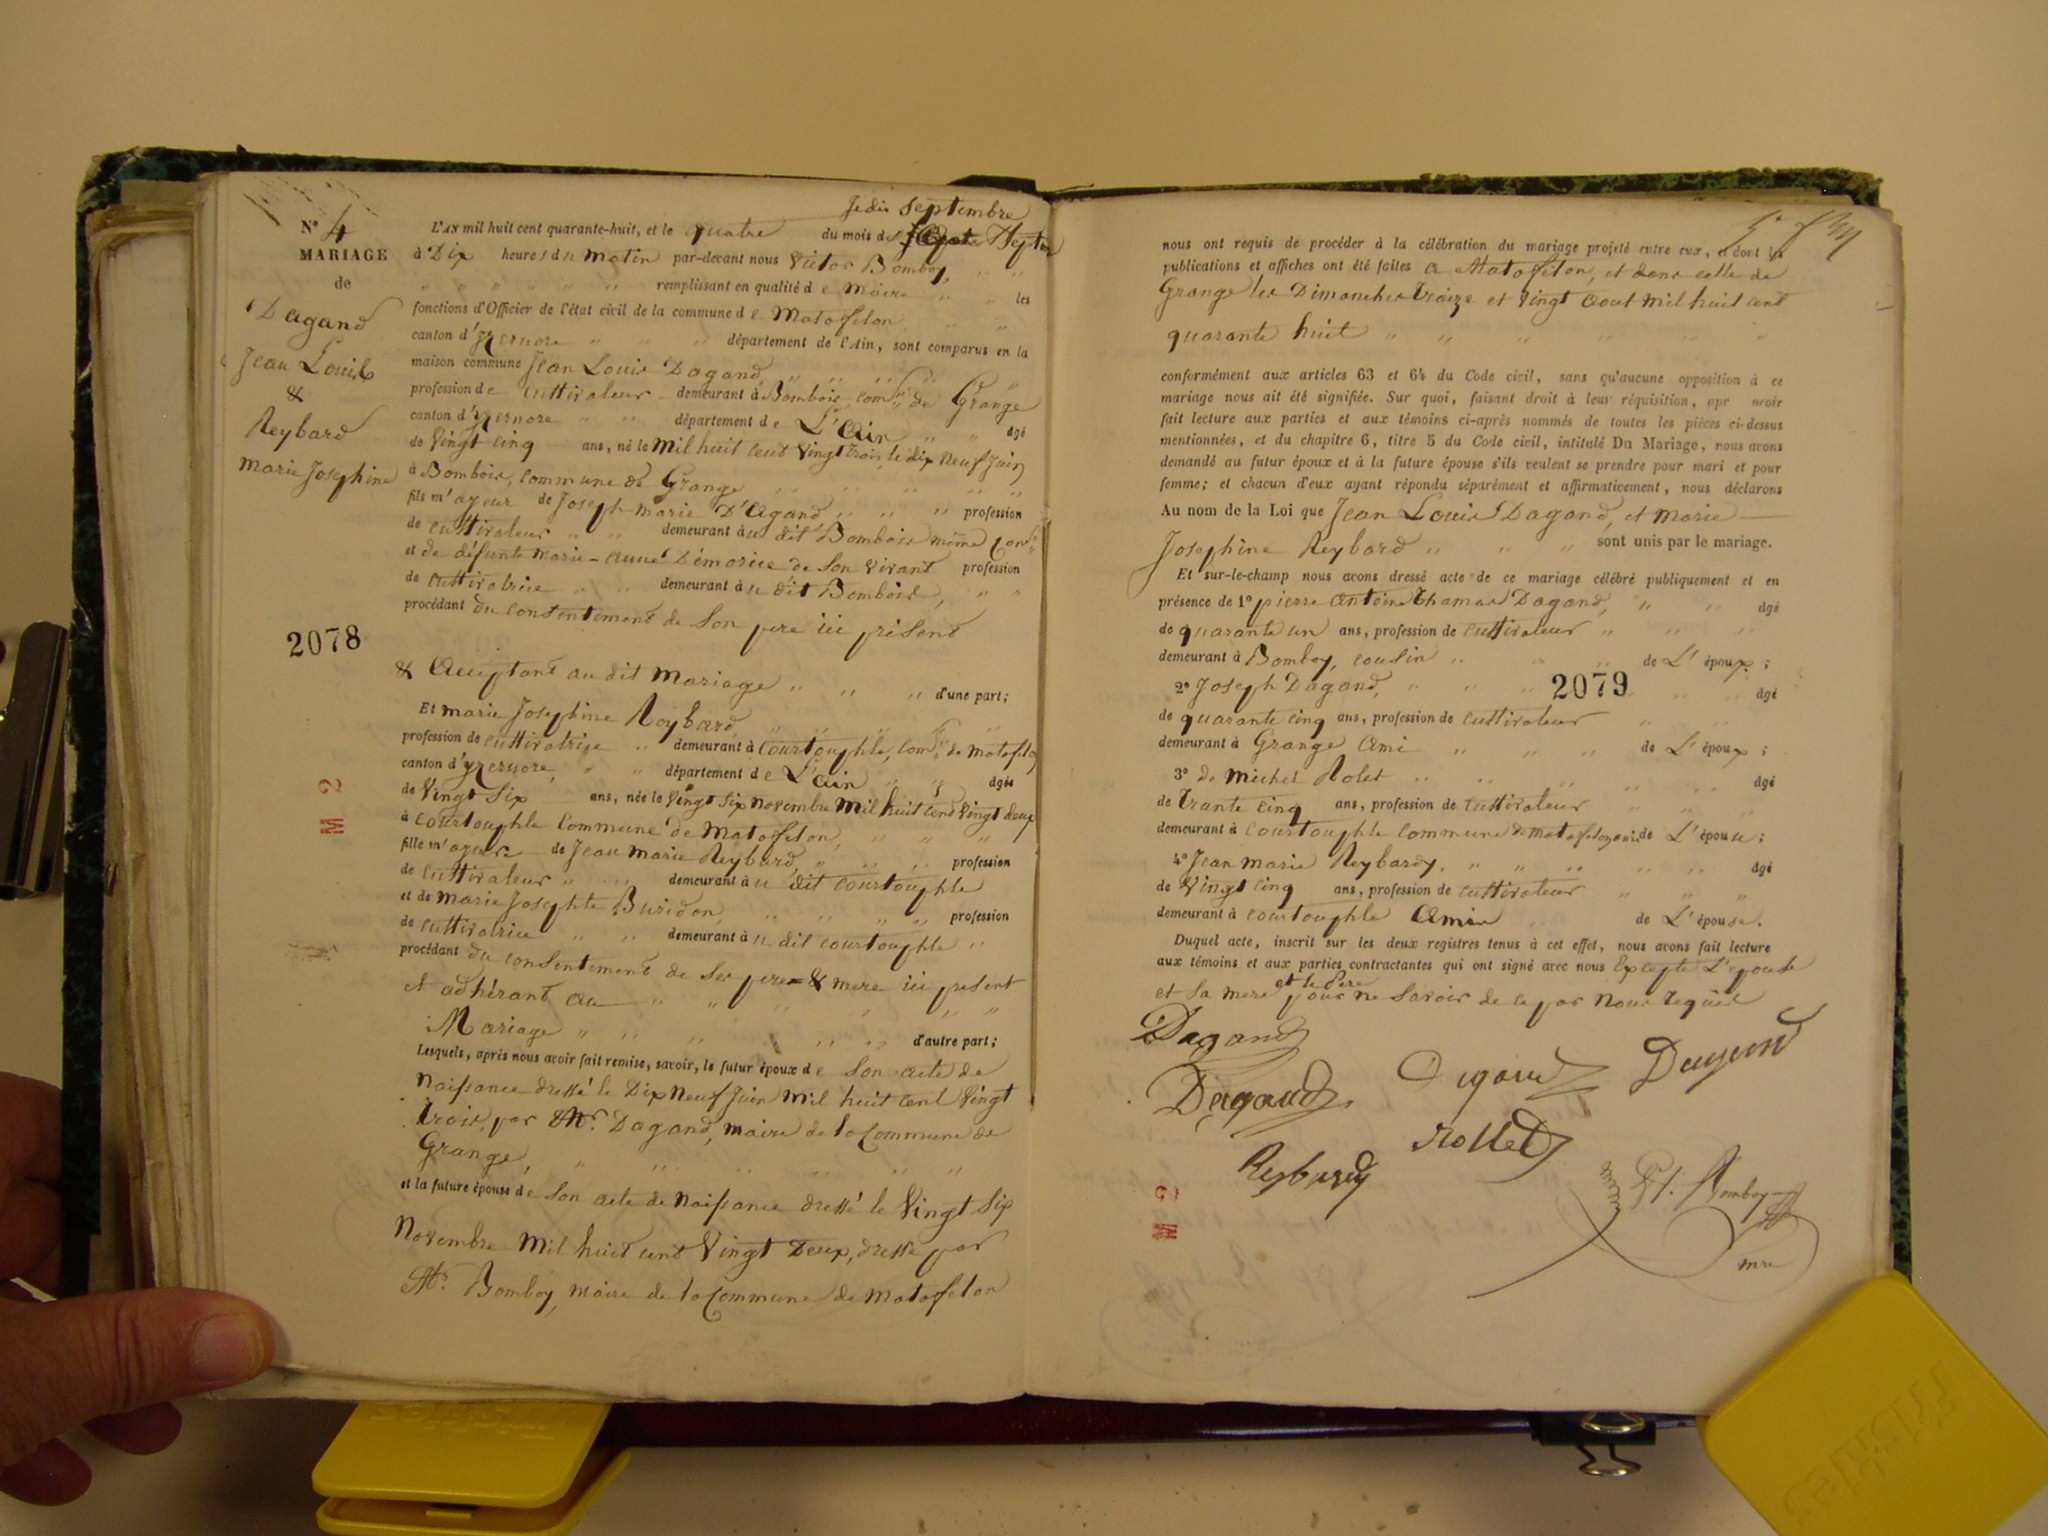 N° 4
MARIAGE
de
Dagand
Jean Louis
&
Reybard
marie Josephine
2078
M 2
Je dis septembre
L'AN mil huit cent quarante-huit, et le quatre du mois de
à Dix heures du matin par-devant nous Victor Bomboy,
remplissant en qualité de maire les
fonctions d'Officier de l'état civil de la commune de Matafelon
canton d'yzernore département de l'Ain, sont comparus en la
maison commune Jean Louis Dagand,
profession de Cultivateur demeurant à Bombois, Comne de Grange
canton d'yzernore département de L'Ain âgé
de Vingt cinq ans, né le Mil huit cent Vingt trois, le dix neuf juin
à Bombois, commune de Grange
fils m'ajeur de Joseph marie D'Agand profession
de cultivateur demeurant àu dit Bombois même Comne
et de défunte marie-anne Démorice de son vivant profession
de cultivatrice demeurant àu dit Bombois,
procédant du consentement de son pere ici présent
& Acceptant au dit Mariage d'une part;
Et marie Josephine Reybard,
profession de cultivatrice demeurant à Courtouphle, Comne de matafelon
canton d'yzernore, département de L'ain âgée
de Vingt Six ans, née le Vingt six novembre mil huit cent Vingt deux
à Courtouphle Commune de Matafelon,
fille m'ajeure de Jean marie Reybard, profession
de cultivateur demeurant àu dit courtouphle
et de marie Josephte Buridon, profession
de cultivatrice demeurant àu dit courtouphle
procédant du consentement de ses pere & mere ici présent
et adhérant au
Mariage d'autre part;
Lesquels, après nous avoir fait remise, savoir, le futur époux de son acte de
naissance dressé le Dix Neuf Juin Mil huit cent Vingt
trois, par Mr. Dagand, maire de la Commune de
Grange,
et la future épouse de son acte de naissance dressé le Vingt six
Novembre Mil huit cent Vingt Deux, dressé par
Mr. Bomboy, Maire de la Commune de Matafelon
nous ont requis de procéder à la célébration du mariage projeté entre eux, et dont les
publications et affiches ont été faites a Matafelon, et dans celle de
Grange les Dimanches treize et Vingt aout mil huit cent
quarante huit
conformément aux articles 63 et 64 du Code civil, sans qu'aucune opposition à ce
mariage nous ait été signifiée. Sur quoi, faisant droit à leur réquisition, apr avoir
fait lecture aux parties et aux témoins ci-après nommés de toutes les pièces ci-dessus
mentionnées, et du chapitre 6, titre 5 du Code civil, intitulé Du Mariage, nous avons
demandé au futur époux et à la future épouse s'ils veulent se prendre pour mari et pour
femme; et chacun d'eux ayant répondu séparément et affirmativement, nous déclarons
Au nom de la Loi que Jean Louis Dagand, et marie
Josephine Reybard sont unis par le mariage.
Et sur-le-champ nous avons dressé acte de ce mariage célébré publiquement et en
présence de 1° pierre antoine thamas Dagand, âgé
de quarante un ans, profession de cultivateur
demeurant à Bomboy, cousin de L'époux;
2° Joseph Dagand, 2079 âgé
de quarante cinq ans, profession de cultivateur
demeurant à Grange ami de L'époux;
3° de Michel Rolet âgé
de trante cinq ans, profession de cultivateur
demeurant à courtouphle commune de matafelon ami de L'épouse;
4° Jean marie Reybardy, âgé
de Vingt cinq ans, profession de cultivateur
demeurant à courtouphle Amis de L'épouse.
Duquel acte, inscrit sur les deux registres tenus à cet effet, nous avons fait lecture
aux témoins et aux parties contractantes qui ont signé avec nous Excepté L'epouse
et sa mere et le Pere pour ne savoir de ce par nous requis
Dagand
Dagand Dagand
Rollet
Reybardy
Vt. Bomboy
mre
M 2